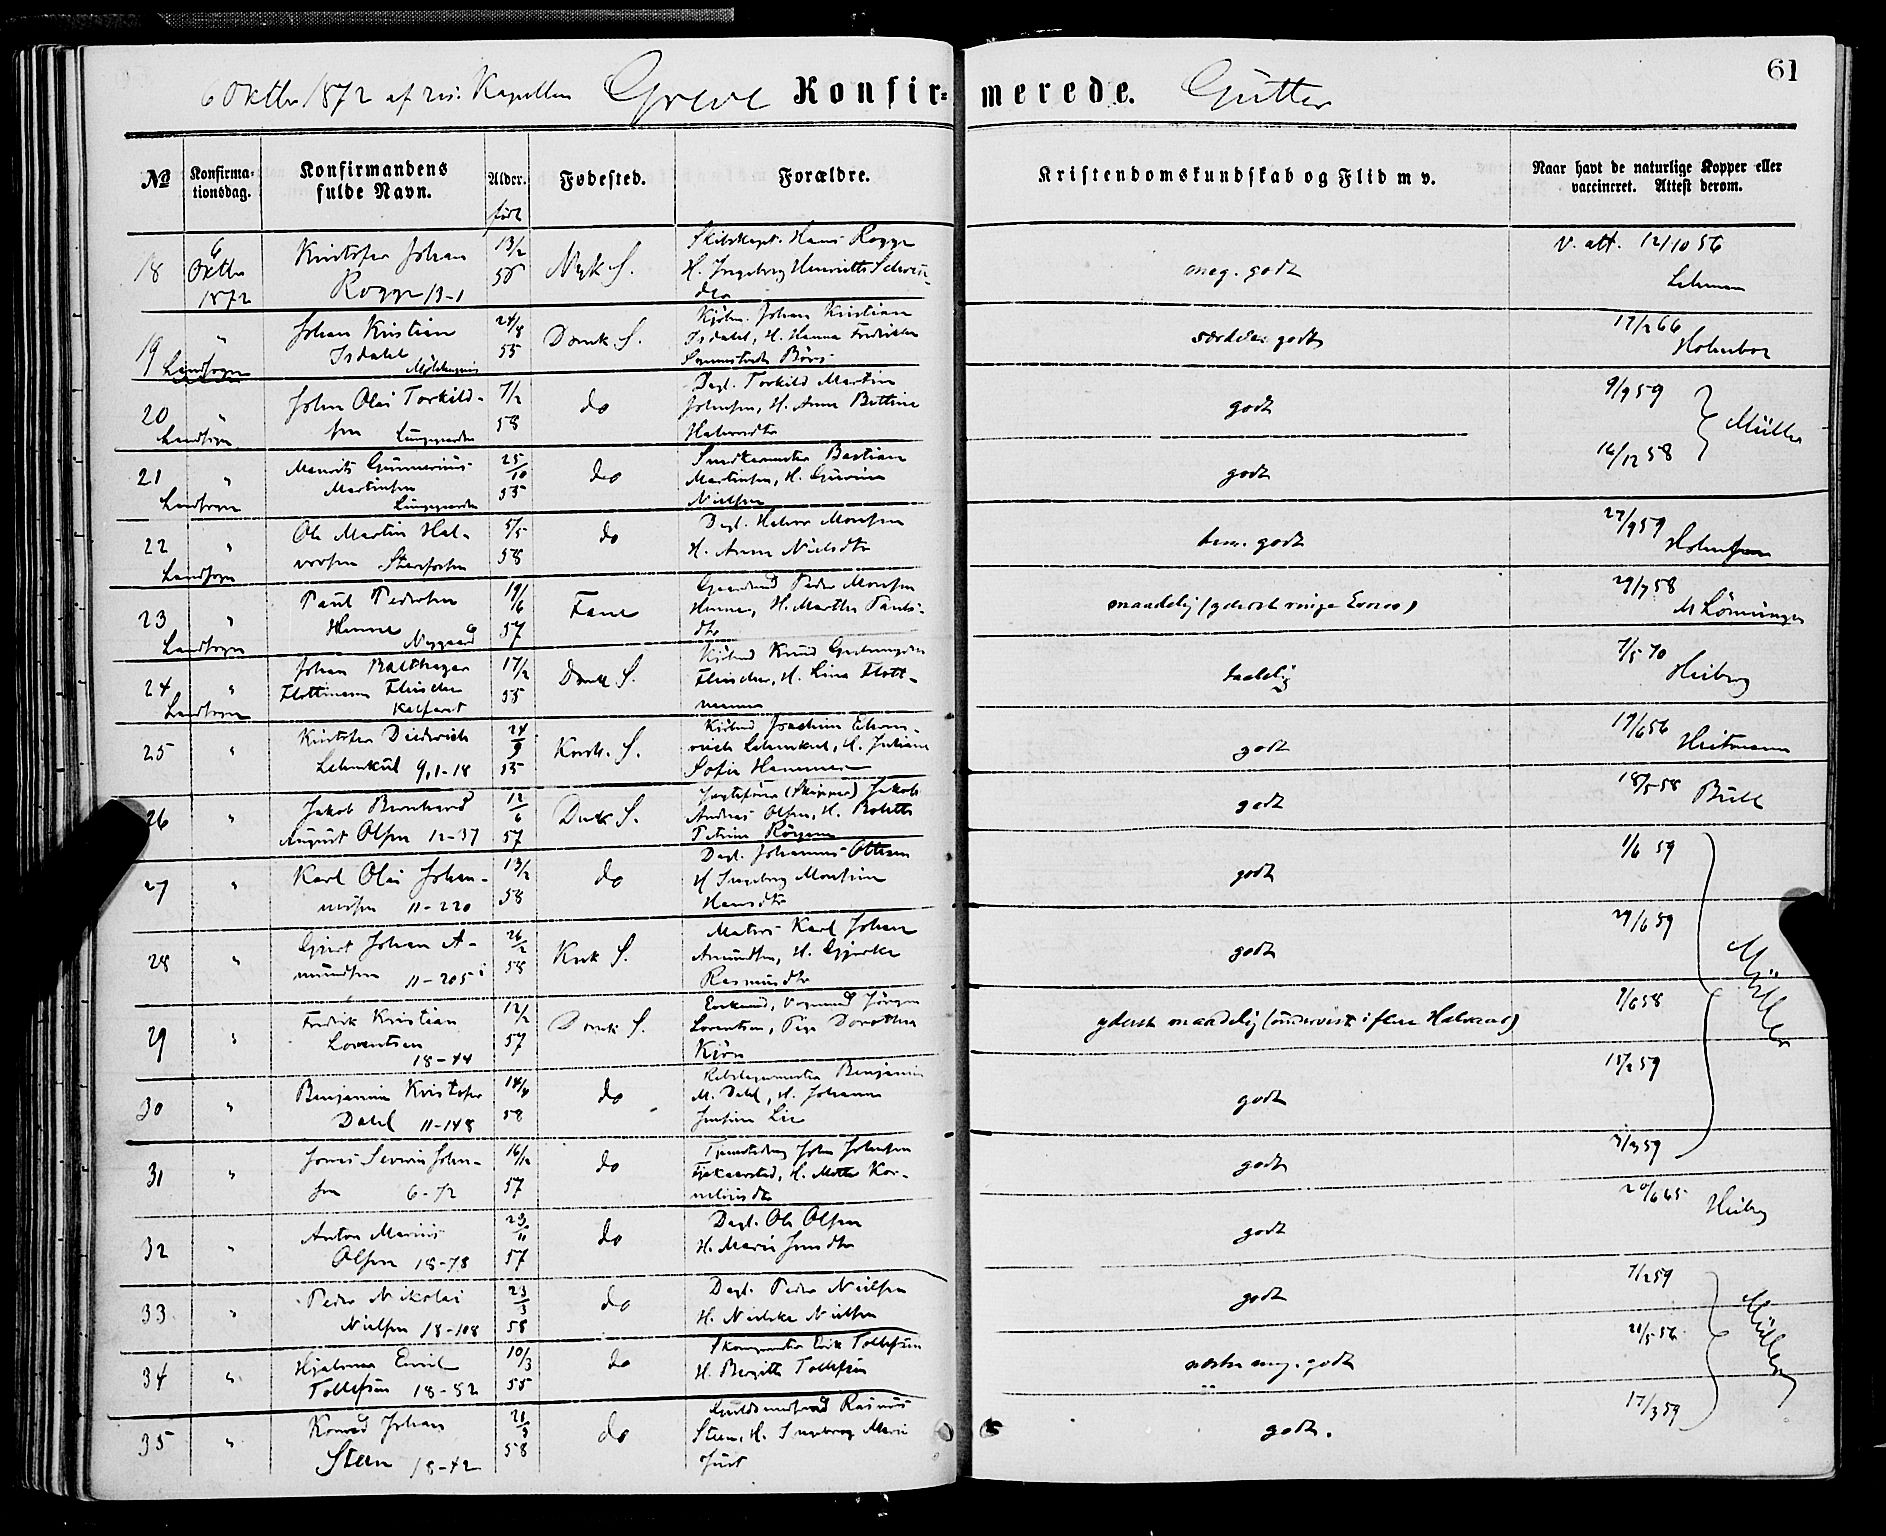 61
6 Oktbr 1872 af res. Kapellan Greve Konfirmerede. Gutter
No Konfirmationsdag. Konfirmandens fulde Navn. Alder. født Fødested. Forældre. Kristendomskundskab og Flid m v. Naar havt de naturlige Kopper eller vaccineret. Attest derom.
18 6 Oktbr 1872 Kristofer Johan Rogge 13-1 13/2 Nyk S. Skibskapt. Hans Rogge H. Ingeborg Henriette meg. godt v. att. 12/10 56 Lehman
19 " Landsogn Johan Kristian Isdahl 24/8 55 Domk S. Johan Kristian Isdahl, H. Hanna Fredrikke særdeles godt 17/2 66 Holmboe
20 " Landsogn John Olai Torkildsen Lungegaarden 7/2 58 do Dagl. Torkild Martin Johnsen, H. Anne Bertine Halvorsdtr godt 9/9 59 Müller
21 " Landsogn Maurits Gunnerius Martinsen Lungegaarden 25/10 55 do Bastian Martinsen, H. Gurine Nielsen godt 16/12 58
22 " Landsogn Ole Martin Halvorsen 5/5 58 do Dagl. Halvor Monsen H. Anne Nielsdtr godt 27/9 59
23 " Landsogn Paul Pedersen Nygaard 19/6 57 Fane Gaardmd Peder Monsen H. Marthe Paulsdtr maadelig (yderst ringe Evner) 29/7 58
24 " Landsogn Johan Balthazar Flottmann Fleischer Kalfaret 17/2 55 Domk S. Kjøbmd Knud Fleischer, H. Lina Flottmann taalelig 7/5 70 Heiberg
25 " Kristofer Diederich Lehmkul 9,1-18 24/9 55 Korsk. S. Kjøbmd Joachim Lehmkul, H. Juliane Sofie Hammer godt 19/6 56 Heitmann
26 " Jakob Bernhard August Olsen 12-37 12/6 57 Domk S. Jagtefører (Skipper) Jakob Andreas Olsen, H. Bolette Petrine godt 18/5 58 Bull
27 " Karl Olai Johannessen 11-220 13/2 58 do Dagl. Johannes Ottesen H Ingeborg Monsine Hansdtr godt 1/6 59 Müller
28 " Gjert Johan Amundsen 11-205 26/2 58 Kork S. Matros Karl Johan Amundsen, H. Gjertke Rasmusdtr godt 29/6 59
29 " Fredrik Kristian Lorentsen 18-44 12/2 57 Domk S. Enkemd, Vognmd Jørgen Lorentsen, Pige Dorothea yderst maadelig (undervist i flere Halvaar) 9/6 58
30 " Benjamin Kristofer Dahl 11-148 14/4 58 do Rebslagermester Benjamin M. Dahl, H. Johanne Justine Lie godt 15/2 59
31 " Jonas Severin Johnsen 6-72 16/12 57 do John Johnsen H. Mette Korneliusdtr godt 3/3 59
32 " Anton Marius Olsen 18-78 23/11 57 do Dagl. Ole Olsen H. Marie godt 20/6 65 Heiberg
33 " Peder Nikolai Nielsen 18-108 23/3 58 do Dagl. Peder Nielsen H. Nielske Nielsen godt 7/2 59 Müller
34 " Hjalmar Emil Tollefsen 18-82 10/3 55 do Skomagermester Erik Tollefsen H. Bergitte Tollefsen næsten meg. godt 21/5 56
35 " Konrad Johan Steen 18-42 21/3 58 do Rasmus Steen, H. Ingeborg Marie Just godt. 17/3 59